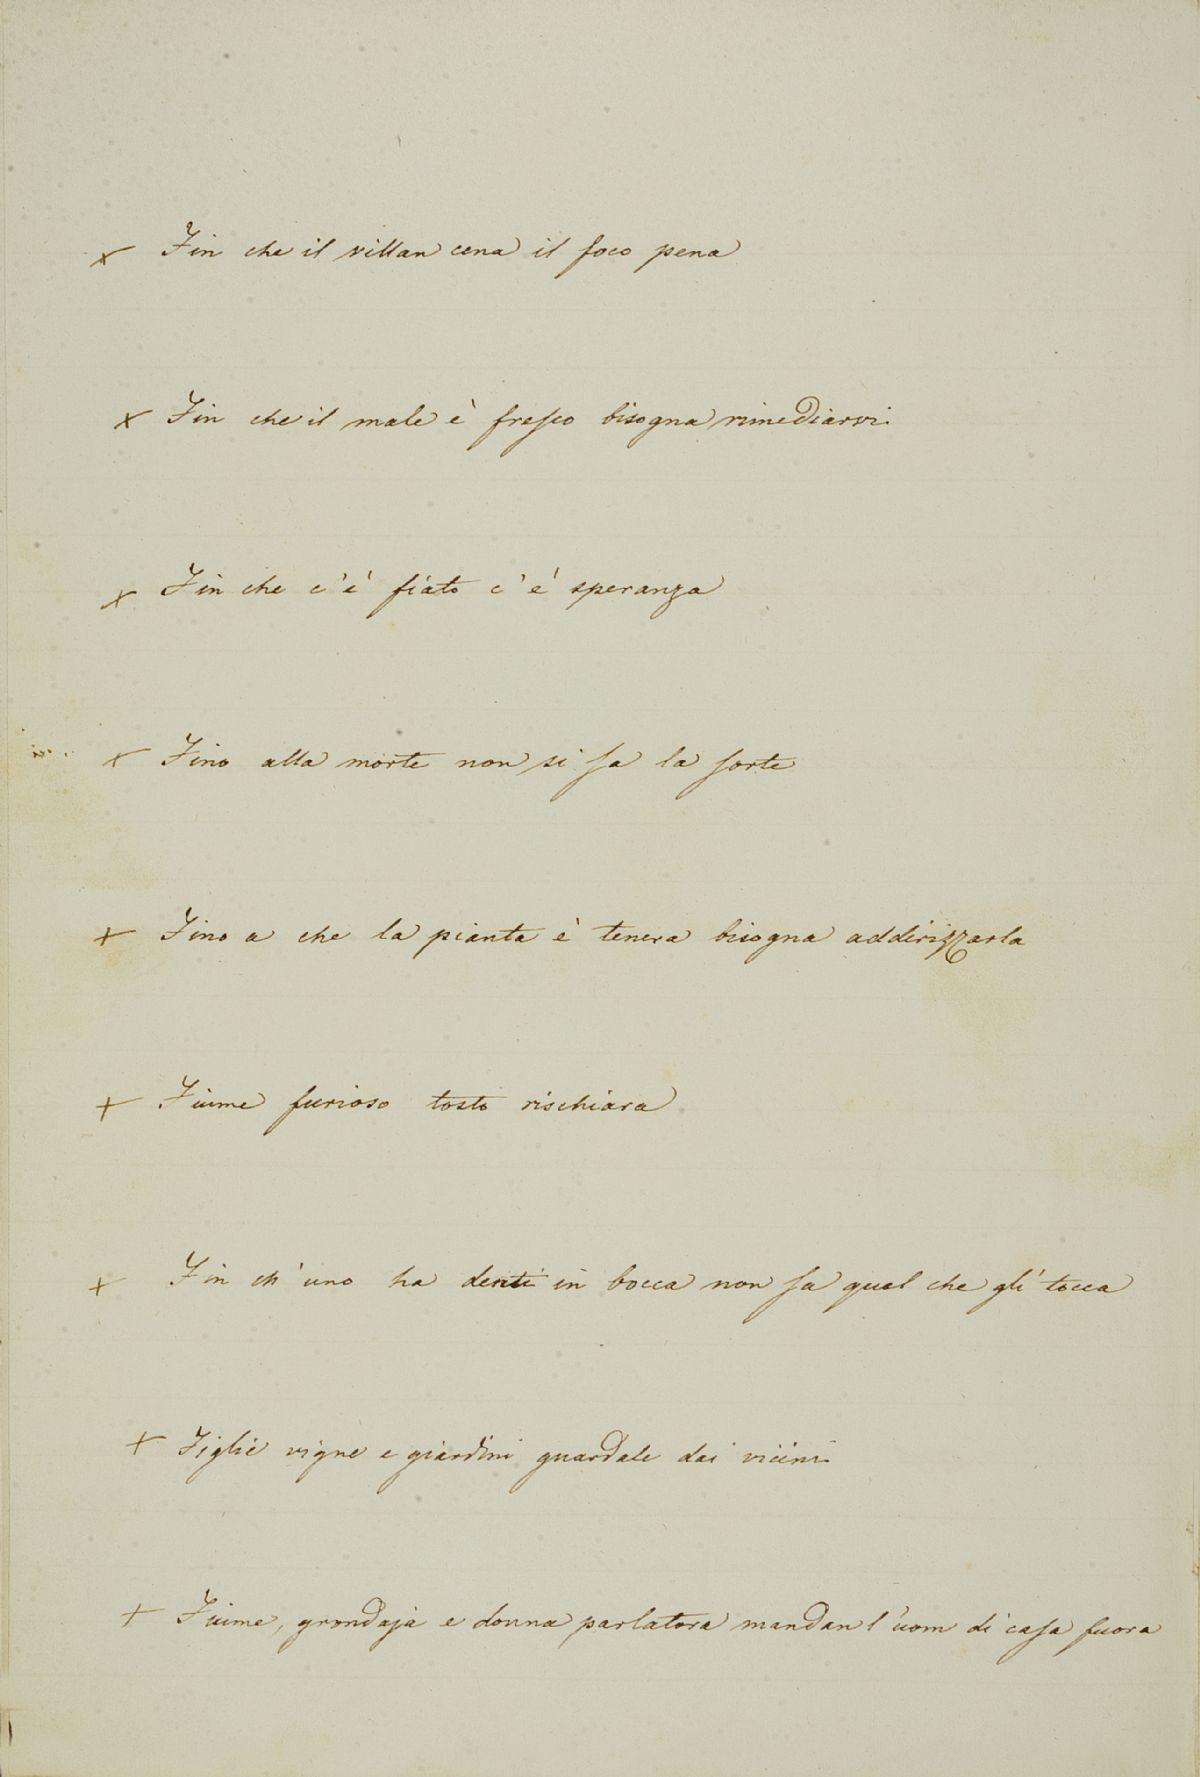 x Fin che il villan cena il foco pena
x Fin che il male è fresco bisogna rimediarvi
x Fin che c'è fiato c'è speranza
x Fino alla morte non si sa la sorte
+ Fino a che la pianta è tenera bisogna addirizzarla
+ Fiume furioso tosto rischiara
+ Fin ch'uno ha denti in bocca non sa quel che gli tocca
+ Figlie vigne e giardini guardale dai vicini
+ Fiume, grondaja e donna parlatora mandan l'uom di casa fuora